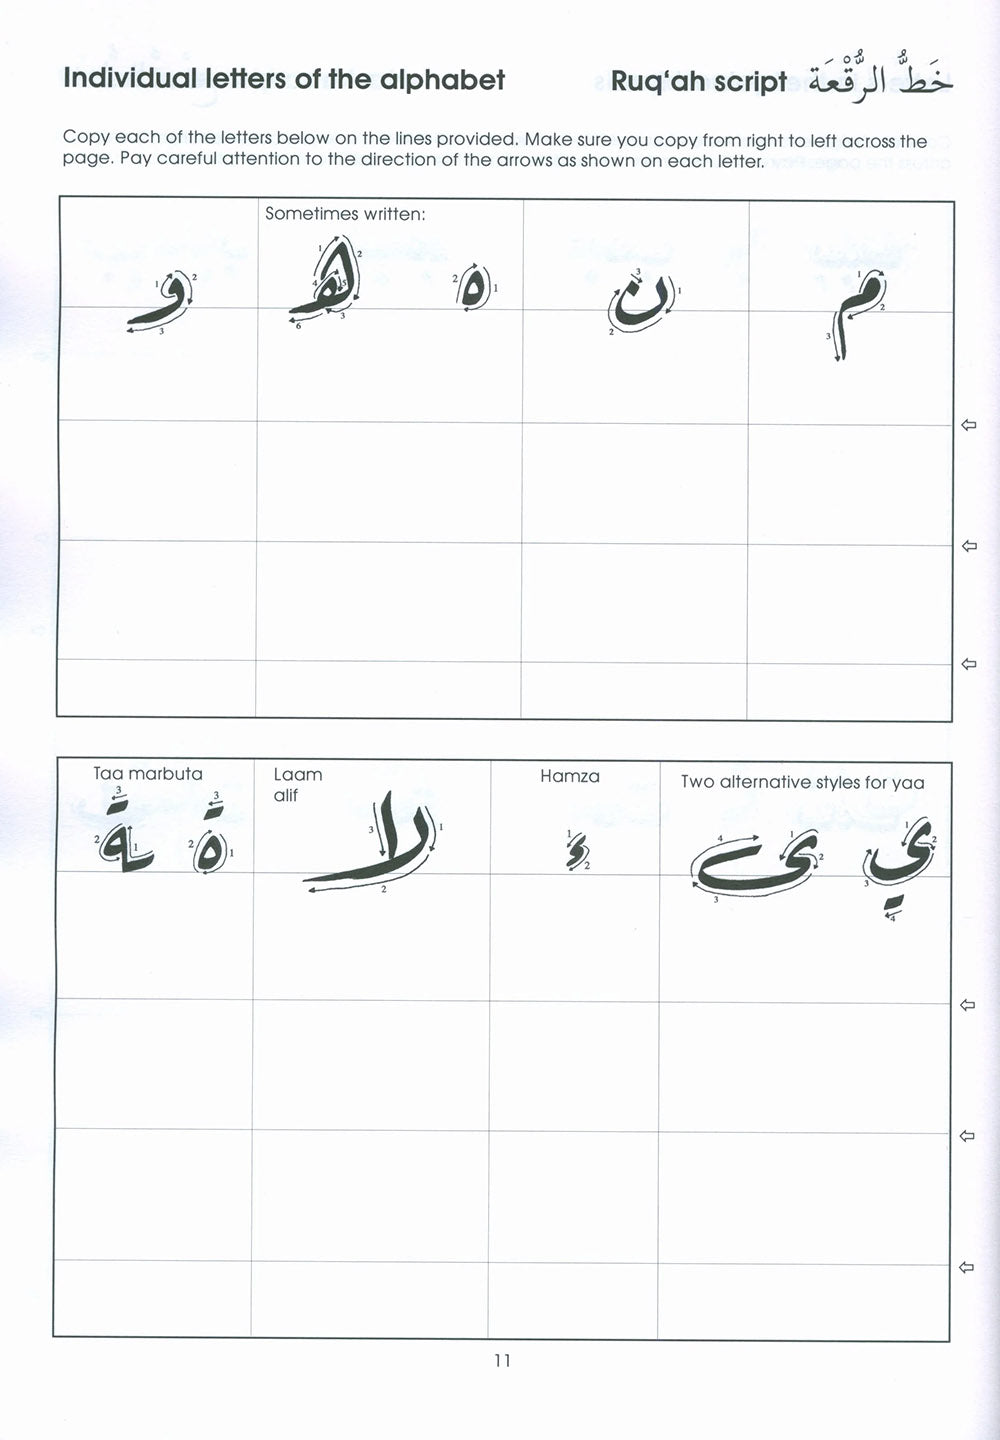 Individual letters of the alphabet Ruq‘ah script خَطُّ الرُّقْعَة
Copy each of the letters below on the lines provided. Make sure you copy from right to left across the
page. Pay careful attention to the direction of the arrows as shown on each letter.
Sometimes written:
م ن ه ه و
Taa marbuta Laam alif Hamza Two alternative styles for yaa
ي ى ء لا ة ـة
11